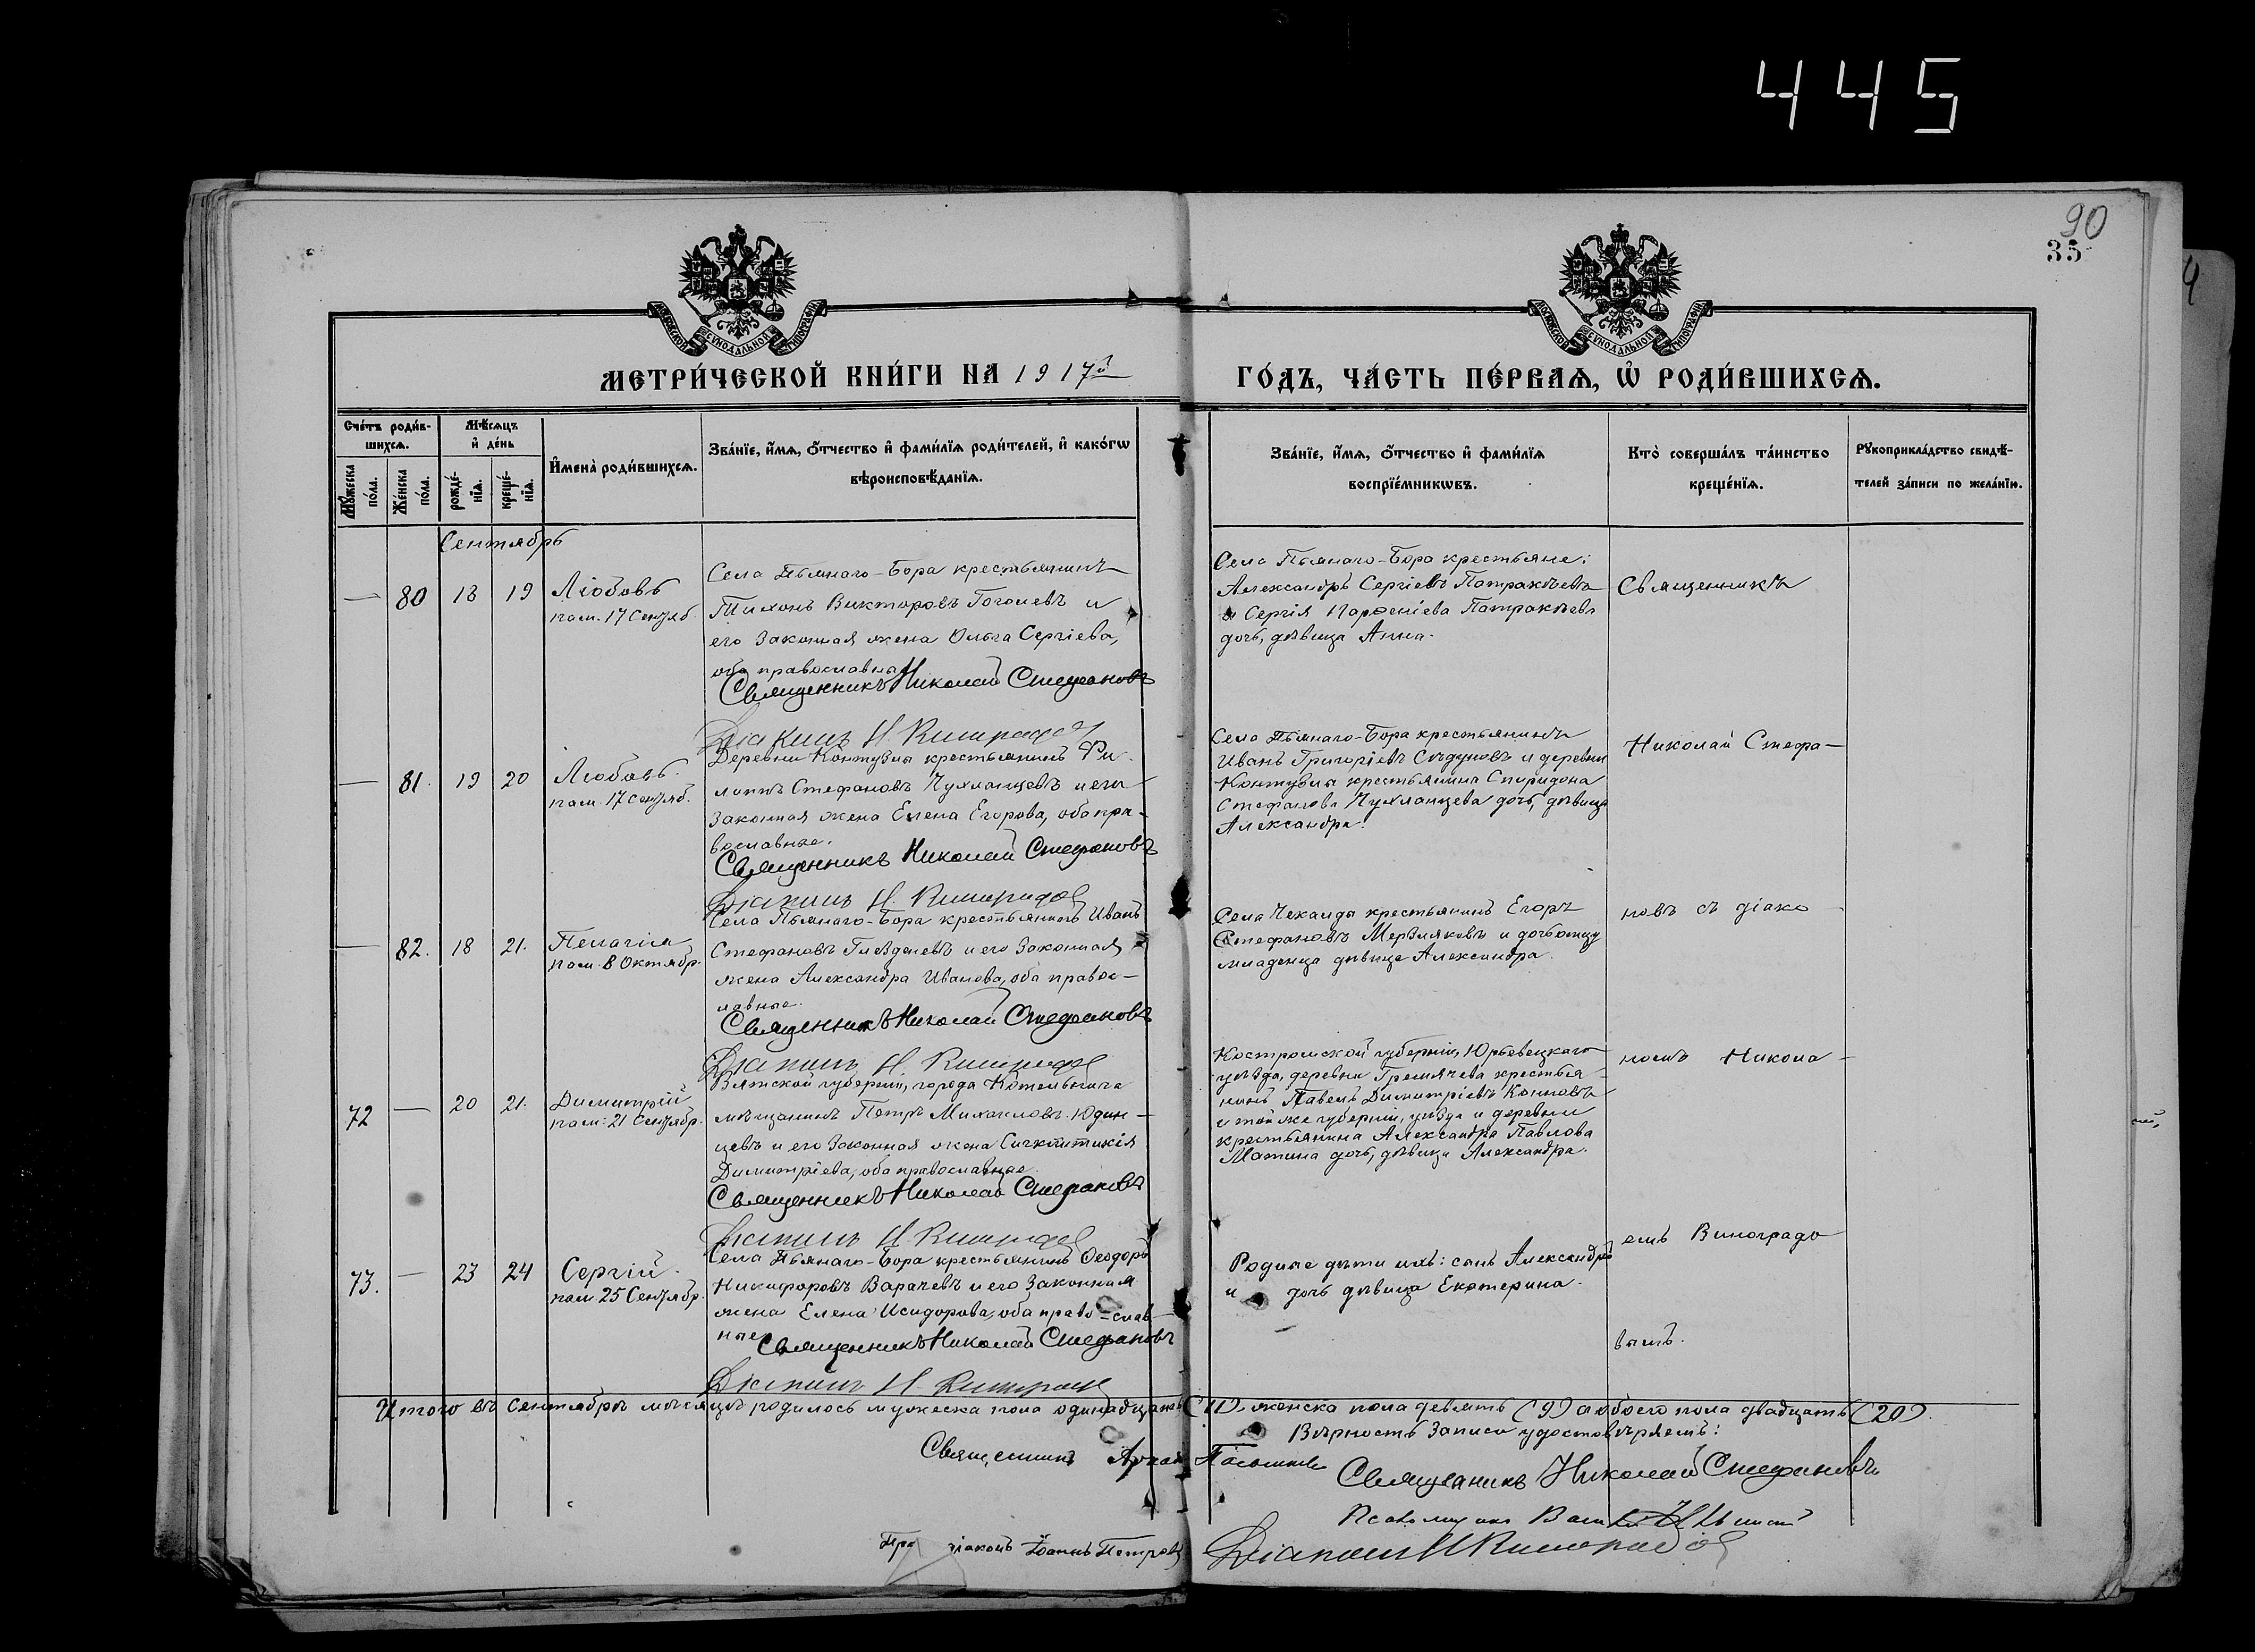 445
90
35
МОСКОВСКОЙ СѴНОДАЛЬНОЙ ТИПОГРАФІИ
МОСКОВСКОЙ СѴНОДАЛЬНОЙ ТИПОГРАФІИ
МЕТРИ́ЧЕСКОЙ КНИ́ГИ НА 1917й
ГО́ДЪ, ЧА́СТЬ ПЕ́РВАѦ, Ѡ҆ РОДИ́ВШИХСѦ.
Сче́тъ роди́в-
шихсѧ.
Мѣ́сѧцъ
и҆ де́нь
Мꙋ́жеска
по́ла.
Же́нска
по́ла.
рожде́-
нїѧ.
креще́-
нїѧ.
И҆мена̀ роди́вшихсѧ.
Зва́нїе, и҆́мѧ, ѻ҆́тчество и҆ фами́лїѧ роди́телей, и҆ како́гѡ
вѣроисповѣ́данїѧ.
Зва́нїе, и҆́мѧ, ѻ҆́тчество и҆ фами́лїѧ
воспрїе́мникѡвъ.
Кто̀ соверша́лъ та́инство
креще́нїѧ.
Рꙋкоприкла́дство свидѣ́-
телей за́писи по жела́нїю.
Сентябрь
— 80 18 19 Любовь
пам. 17 Сентяб.
Села Пьянаго-Бора крестьянинъ
Тихонъ Викторовъ Гоголевъ и
его законная жена Ольга Сергіева,
оба православные
Священникъ Николай Стефановъ
Діаконъ Н. Виноградов
Села Пьянаго-Бора крестьяне:
Александръ Сергіевъ Патракѣевъ
и Сергія Парѳеніева Патракѣева
дочь, дѣвица Анна.
Священникъ
— 81. 19 20 Любовь.
пам. 17 Сентяб.
Деревни Контузлы крестьянинъ Фи-
липпъ Стефановъ Чухланцевъ и его
законная жена Елена Егорова, оба пра-
вославные.
Священникъ Николай Стефановъ
Діаконъ Н. Виноградов
Села Пьянаго-Бора крестьянинъ
Иванъ Григоріевъ и деревни
Контузлы крестьянина Спиридона
Стефанова Чухланцева дочь, дѣвица
Александра.
Николай Стефа-
— 82. 18 21. Пелагія
пам. 8 Октябр.
Села Пьянаго-Бора крестьянинъ Иванъ
Стефановъ и его законная
жена Александра Иванова, оба правос-
лавные.
Священникъ Николай Стефановъ
Діаконъ Н. Виноградов
Села Чеканды крестьянинъ Егоръ
Стефановъ Мерзляковъ и дочь отцу
младенца дѣвица Александра.
новъ съ діако-
72 — 20 21. Димитрій
пам. 21 Сентябр.
Вятской губерніи, города Котельнича
мѣщанинъ Петръ Михаиловъ Юдин-
цевъ и его законная жена
Димитріева, оба православные.
Священникъ Николай Стефановъ
Діаконъ Н. Виноградов
Костромской губерніи, Юрьевецкаго
уѣзда, деревни Гремячева крестья-
нинъ Павелъ Димитріевъ и
той же губерніи, уѣзда и деревни
крестьянина Александра Павлова
Матина дочь, дѣвица Александра.
номъ Никола-
73. — 23 24 Сергій.
пам. 25 Сентябр.
Села Пьянаго-Бора крестьянинъ Ѳеодоръ
Никифоровъ Варачевъ и его законная
жена Елена Исидорова, оба право-слав-
ные.
Священникъ Николай Стефановъ
Діаконъ Н. Виноградов
Родные дѣти ихъ: сынъ Александръ
и дочь дѣвица Екатерина.
емъ Виноградо
вымъ.
Итого въ Сентябрѣ мѣсяцѣ родилось мужеска пола одинадцать (11), женска пола девять (9) а обоего пола двадцать (20).
Вѣрность записи удостовѣряемъ:
Священникъ
Священникъ Николай Стефановъ
Псаломщикъ
діаконъ Іоаннъ Петровъ
Діаконъ Н Виноградов